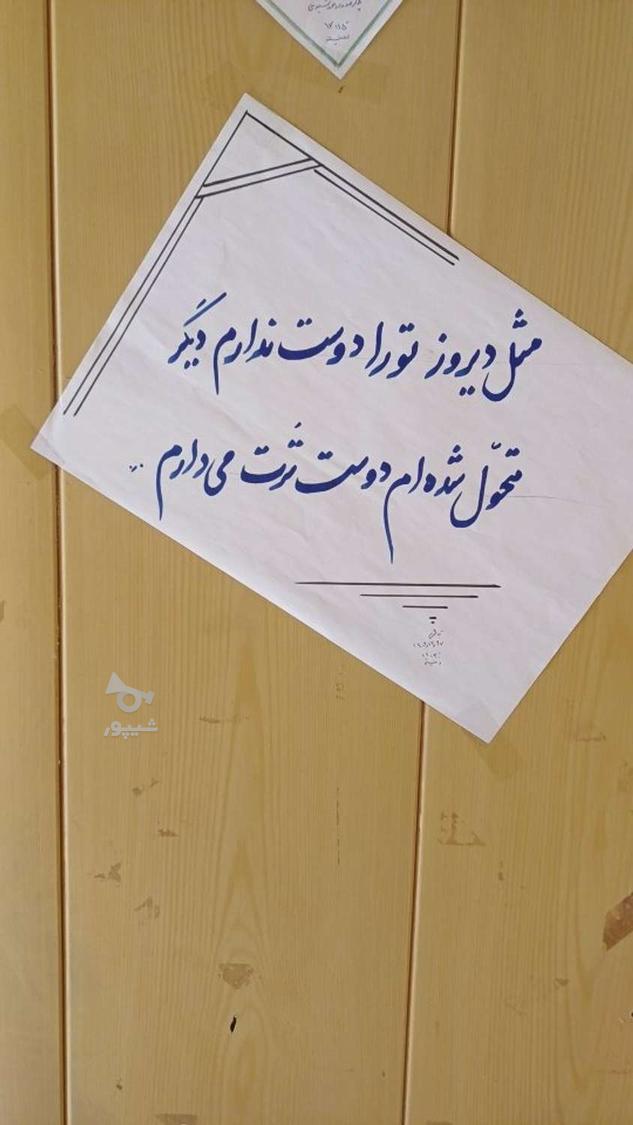 مثل دیروز تو را دوست ندارم دیگر
متحوّل شده‌ام دوست تُرَت می‌دارم
شیپور